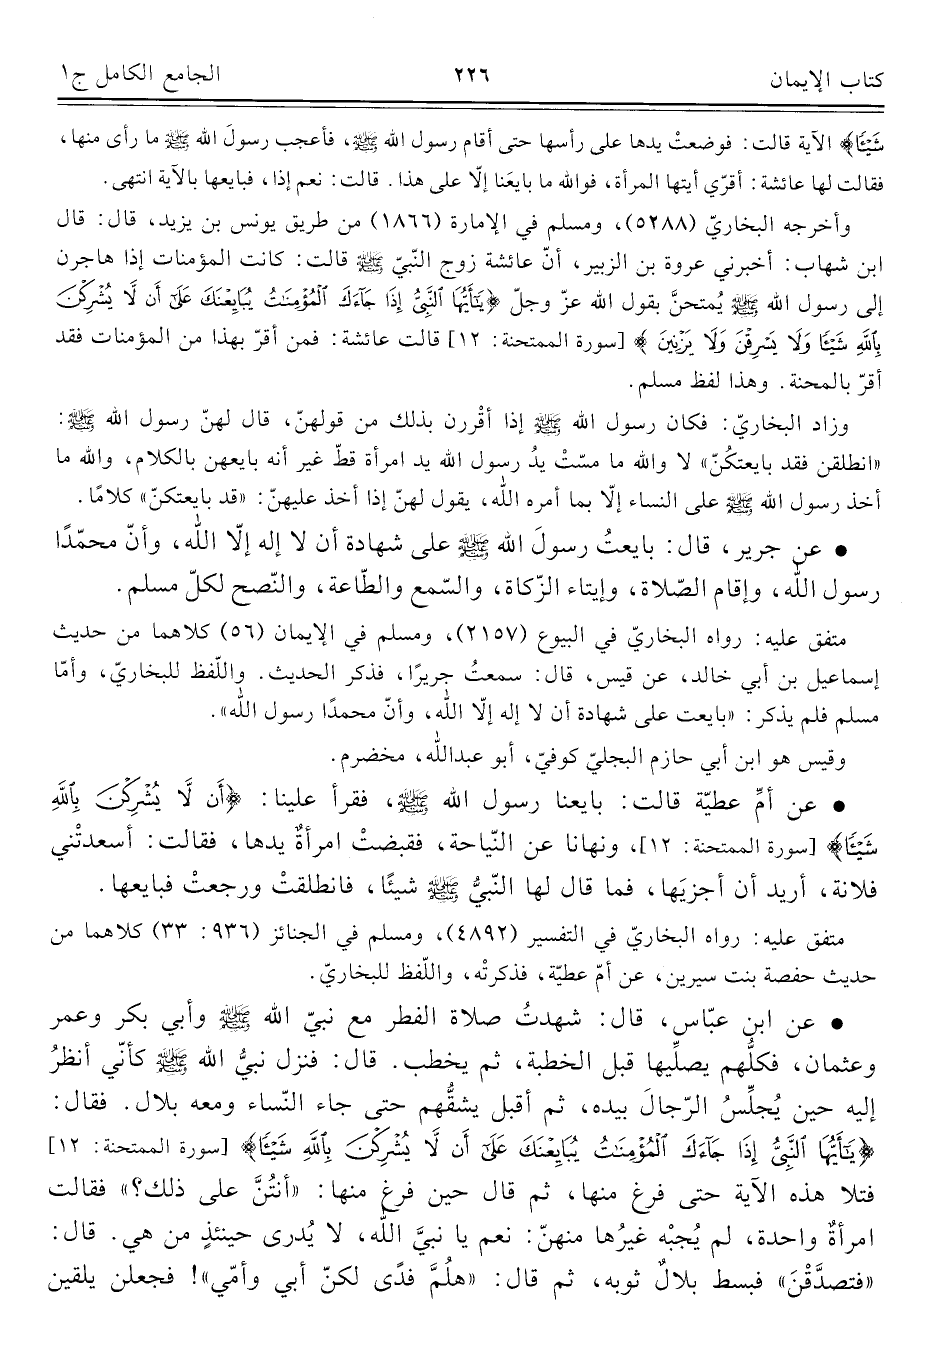 كتاب الإيمان ٢٢٦ الجامع الكامل ج١
شَيْـًٔا﴾ الآية قالت: فوضعتْ يدها على رأسها حتى أقام رسول الله ﷺ، فأعجب رسولَ الله ﷺ ما رأى منها،
فقالت لها عائشة: أقرّي أيتها المرأة، فوالله ما بايعَنا إلّا على هذا. قالت: نعم إذا، فبايعها بالآية انتهى.
وأخرجه البخاريّ (٥٢٨٨)، ومسلم في الإمارة (١٨٦٦) من طريق يونس بن يزيد، قال: قال
ابن شهاب: أخبرني عروة بن الزبير، أنّ عائشة زوج النبيّ ﷺ قالت: كانت المؤمنات إذا هاجرن
إلى رسول الله ﷺ يُمتحنَّ بقول الله عزّ وجلّ ﴿يَـٰٓأَيُّهَا ٱلنَّبِىُّ إِذَا جَآءَكَ ٱلْمُؤْمِنَـٰتُ يُبَايِعْنَكَ عَلَىٰٓ أَن لَّا يُشْرِكْنَ
بِٱللَّهِ شَيْـًٔا وَلَا يَسْرِقْنَ وَلَا يَزْنِينَ﴾ [سورة الممتحنة: ١٢] قالت عائشة: فمن أقرّ بهذا من المؤمنات فقد
أقرّ بالمحنة. وهذا لفظ مسلم.
وزاد البخاريّ: فكان رسول الله ﷺ إذا أقْررن بذلك من قولهنّ، قال لهنّ رسول الله ﷺ:
«انطلقن فقد بايعتكُنّ» لا والله ما مسّتْ يدُ رسول الله يد امرأة قطّ غير أنه بايعهن بالكلام، والله ما
أخذ رسول الله ﷺ على النساء إلّا بما أمره الله، يقول لهنّ إذا أخذ عليهنّ: «قد بايعتكنّ» كلامًا.
• عن جرير، قال: بايعتُ رسولَ الله ﷺ على شهادة أن لا إله إلّا الله، وأنّ محمّدًا
رسول الله، وإقام الصّلاة، وإيتاء الزّكاة، والسّمع والطّاعة، والنّصح لكلّ مسلم.
متفق عليه: رواه البخاريّ في البيوع (٢١٥٧)، ومسلم في الإيمان (٥٦) كلاهما من حديث
إسماعيل بن أبي خالد، عن قيس، قال: سمعتُ جريرًا، فذكر الحديث. واللّفظ للبخاريّ، وأمّا
مسلم فلم يذكر: «بايعت على شهادة أن لا إله إلّا الله، وأنّ محمدًا رسول الله».
وقيس هو ابن أبي حازم البجليّ كوفيّ، أبو عبدالله، مخضرم.
• عن أمِّ عطيّة قالت: بايعنا رسول الله ﷺ، فقرأ علينا: ﴿أَن لَّا يُشْرِكْنَ بِٱللَّهِ
شَيْـًٔا﴾ [سورة الممتحنة: ١٢]، ونهانا عن النّياحة، فقبضتْ امرأةٌ يدها، فقالت: أسعدتْني
فلانة، أريد أن أجزيَها، فما قال لها النّبيُّ ﷺ شيئًا، فانطلقتْ ورجعتْ فبايعها.
متفق عليه: رواه البخاريّ في التفسير (٤٨٩٢)، ومسلم في الجنائز (٩٣٦: ٣٣) كلاهما من
حديث حفصة بنت سيرين، عن أمّ عطيّة، فذكرتْه، واللّفظ للبخاريّ.
• عن ابن عبّاس، قال: شهدتُ صلاة الفطر مع نبيّ الله ﷺ وأبي بكر وعمر
وعثمان، فكلُّهم يصلِّيها قبل الخطبة، ثم يخطب. قال: فنزل نبيُّ الله ﷺ كأنّي أنظرُ
إليه حين يُجلِّسُ الرّجالَ بيده، ثم أقبل يشقُّهم حتى جاء النّساء ومعه بلال. فقال:
﴿يَـٰٓأَيُّهَا ٱلنَّبِىُّ إِذَا جَآءَكَ ٱلْمُؤْمِنَـٰتُ يُبَايِعْنَكَ عَلَىٰٓ أَن لَّا يُشْرِكْنَ بِٱللَّهِ شَيْـًٔا﴾ [سورة الممتحنة: ١٢]
فتلا هذه الآية حتى فرغ منها، ثم قال حين فرغ منها: «أنتُنَّ على ذلك؟» فقالت
امرأةٌ واحدة، لم يُجبْه غيرُها منهنّ: نعم يا نبيَّ الله، لا يُدرى حينئذٍ من هي. قال:
«فتصدَّقْنَ» فبسط بلالٌ ثوبه، ثم قال: «هلُمَّ فدًى لكنّ أبي وأمّي»! فجعلن يلقين